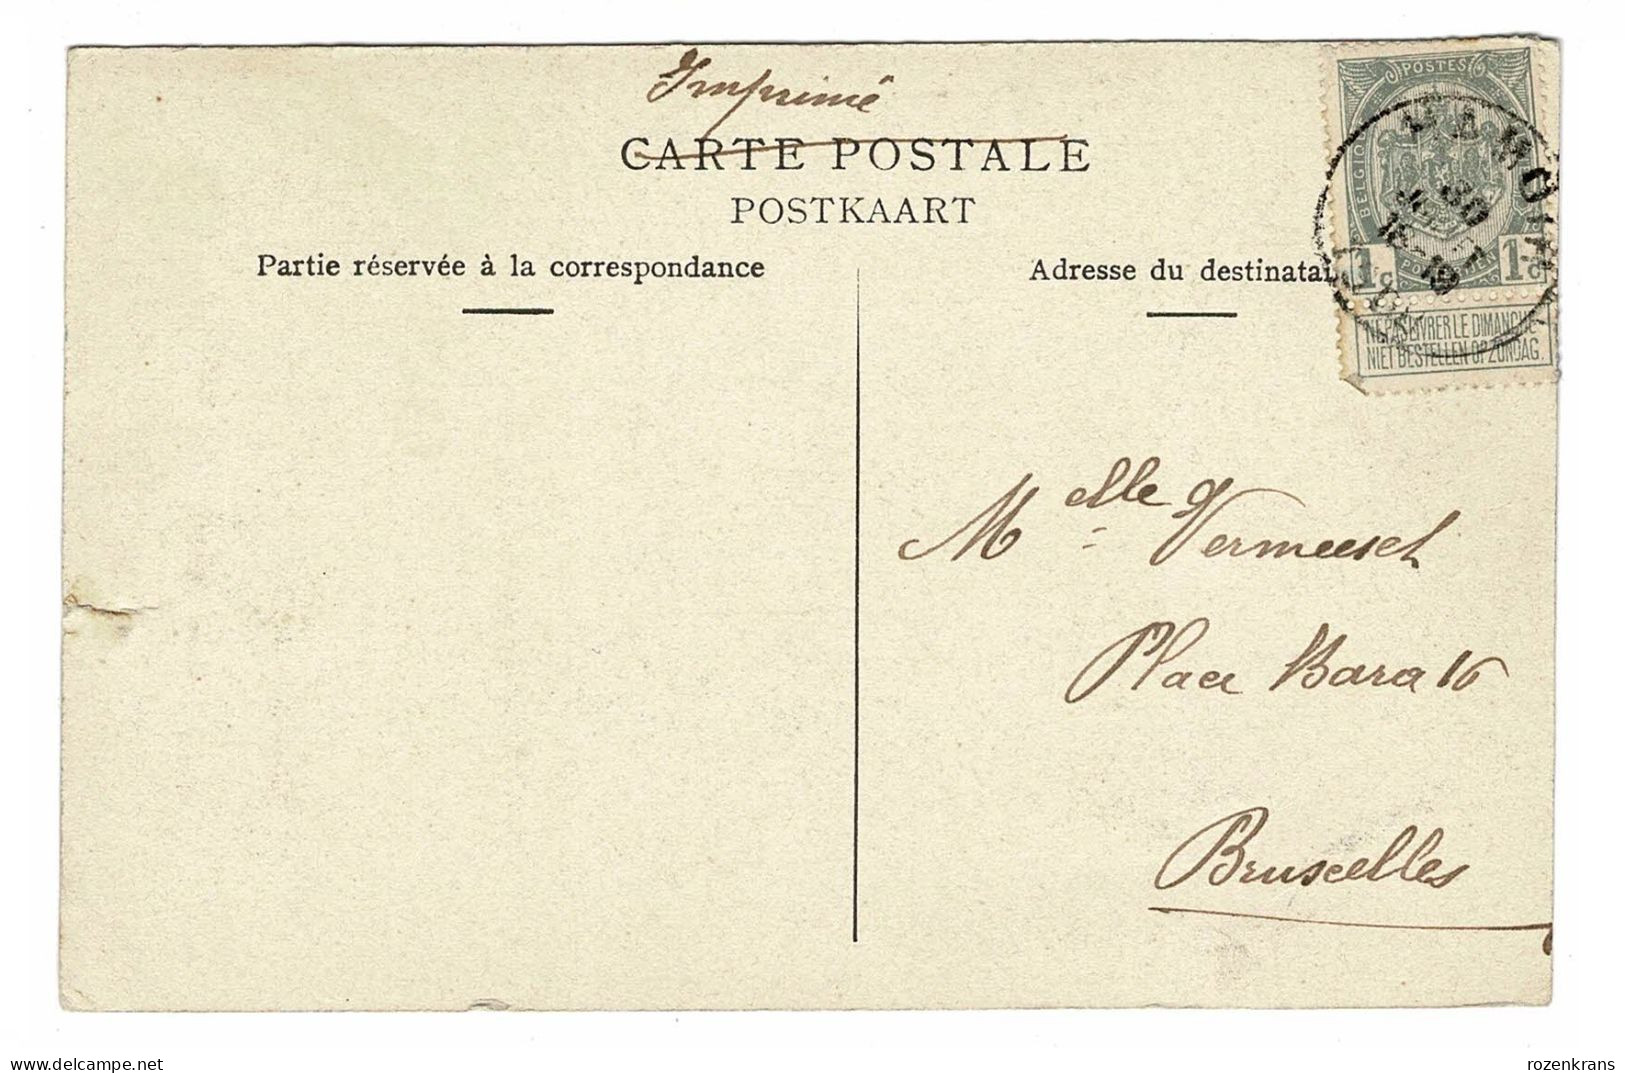 Imprimé
CARTE POSTALE
POSTKAART
Partie réservée à la correspondance
Adresse du destinatai
POSTES
BELGIQUE
1c 1c
NE PAS LIVRER LE DIMANCHE
NIET BESTELLEN OP ZONDAG.
HAMOIR
30
18-19
Melle Vermeesch
Place Bara 16
Bruxelles
delcampe.net
rozenkrans